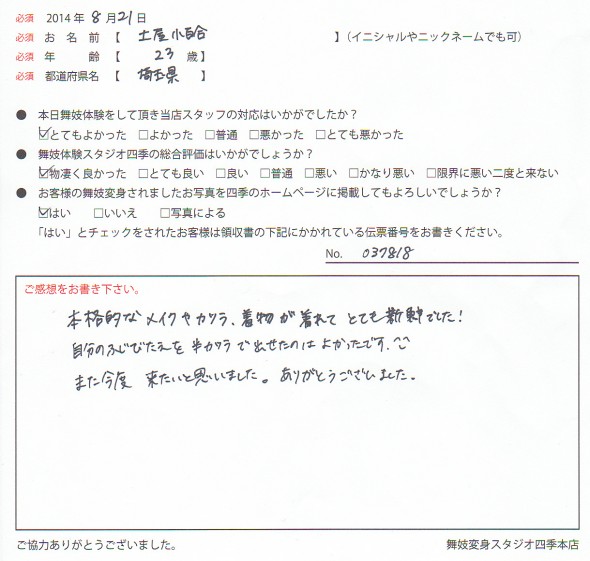 必須 2014年 8月21日
必須 お名前【 土屋小百合 】(イニシャルやニックネームでも可)
必須 年齢【 23歳】
必須 都道府県名【 埼玉県 】
● 本日舞妓体験をして頂き当店スタッフの対応はいかがでしたか？
☑とてもよかった □よかった □普通 □悪かった □とても悪かった
● 舞妓体験スタジオ四季の総合評価はいかがでしょうか？
☑物凄く良かった □とても良い □良い □普通 □悪い □かなり悪い □限界に悪い二度と来ない
● お客様の舞妓変身されましたお写真を四季のホームページに掲載してもよろしいでしょうか？
☑はい □いいえ □写真による
「はい」とチェックをされたお客様は領収書の下記にかかれている伝票番号をお書きください。
No. 037818
ご感想をお書き下さい。
本格的なメイクやカツラ、着物が着れてとても新鮮でした!
自分のふじびたえを半カツラで出せたのはよかったです.^^
また今度 来たいと思いました。ありがとうございました.
ご協力ありがとうございました。 舞妓変身スタジオ四季本店